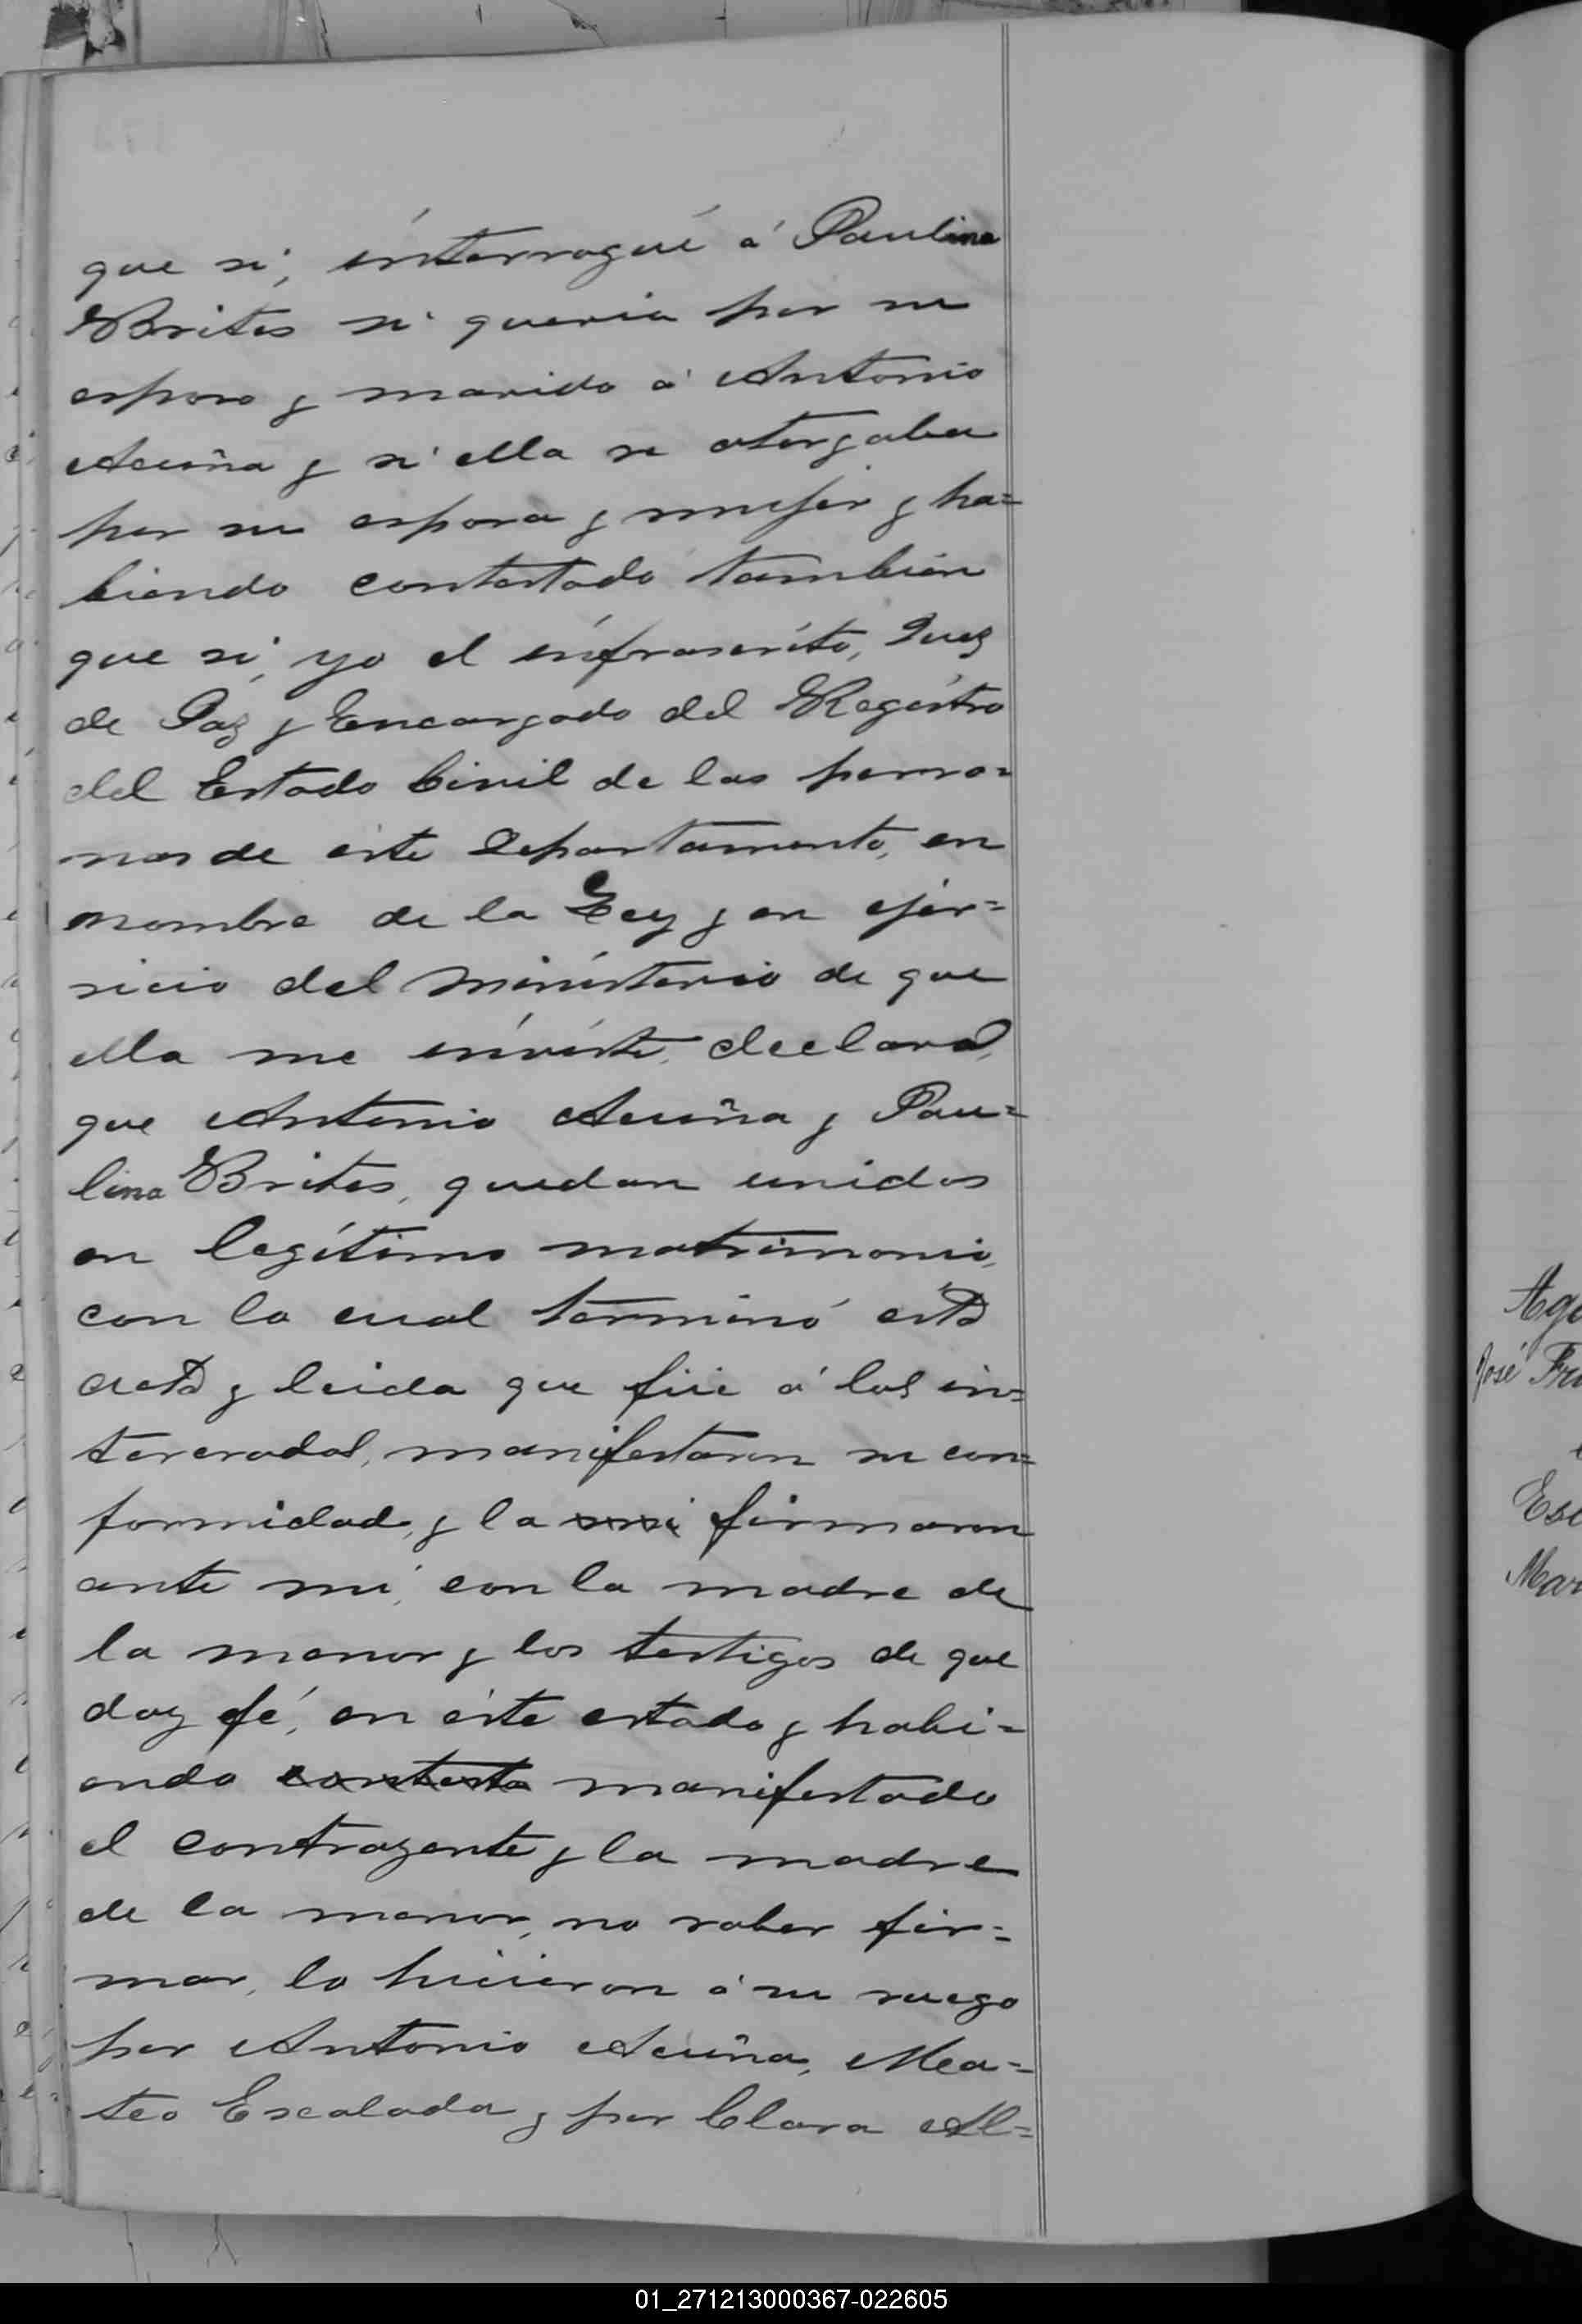 que si, interrogué á Paulina
Brites si queria por su
esposo y marido á Antonio
Acuña y si ella se otorgaba
por su esposa y mujer y ha=
biendo contestado también
que si, yo el infrascrito, Juez
de Paz y Encargado del Registro
del Estado Civil de las perso=
nas de éste Departamento, en
nombre de la Ley y en ejer=
sicio del Ministerio de que
ella me inviste, declaro,
que Antonio Acuña y Pau=
lina Brites, quedan unidos
en legítimo matrimonio,
con lo cual terminó ésta
acta y leida que fué á los in=
teresados, manifestaron su con=
formidad, y la firmaron
ante mi, con la madre de
la menor y los testigos de que
doy fé, en éste estado y habi=
endo contesta manifestado
el contrayente y la madre
de la menor, no saber fir=
mar, lo hicieron á su ruego
por Antonio Acuña, Mea=
teo Escalada y por Clara Al=
José
01_271213000367-022605